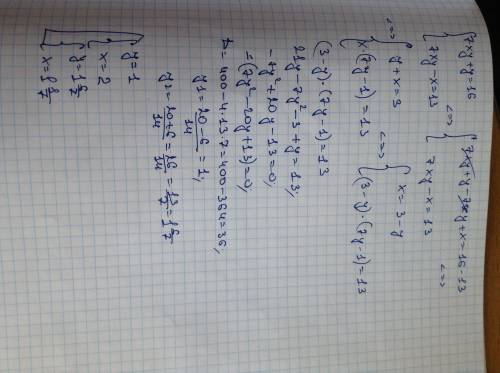 {7xy+y=16 <=> {7xy+y-7xy+x=16-13 <=>
{7xy-x=13 {7xy-x=13
<=> {y+x=3 {x=3-y
{x·(7y-1)=13 {(3-y)·(7y-1)=13
(3-y)·(7y-1)=13
21y-7y²-3+y=13;
-7y²+20y-13=0;
-(7y²-20y+13)=0;
D=400-4·13·7=400-364=36;
y1=(20-6)/14=1;
y2=(20+6)/14=26/14=13/7=1 6/7
[{y=1
{x=2
{y=1 6/7
{x=